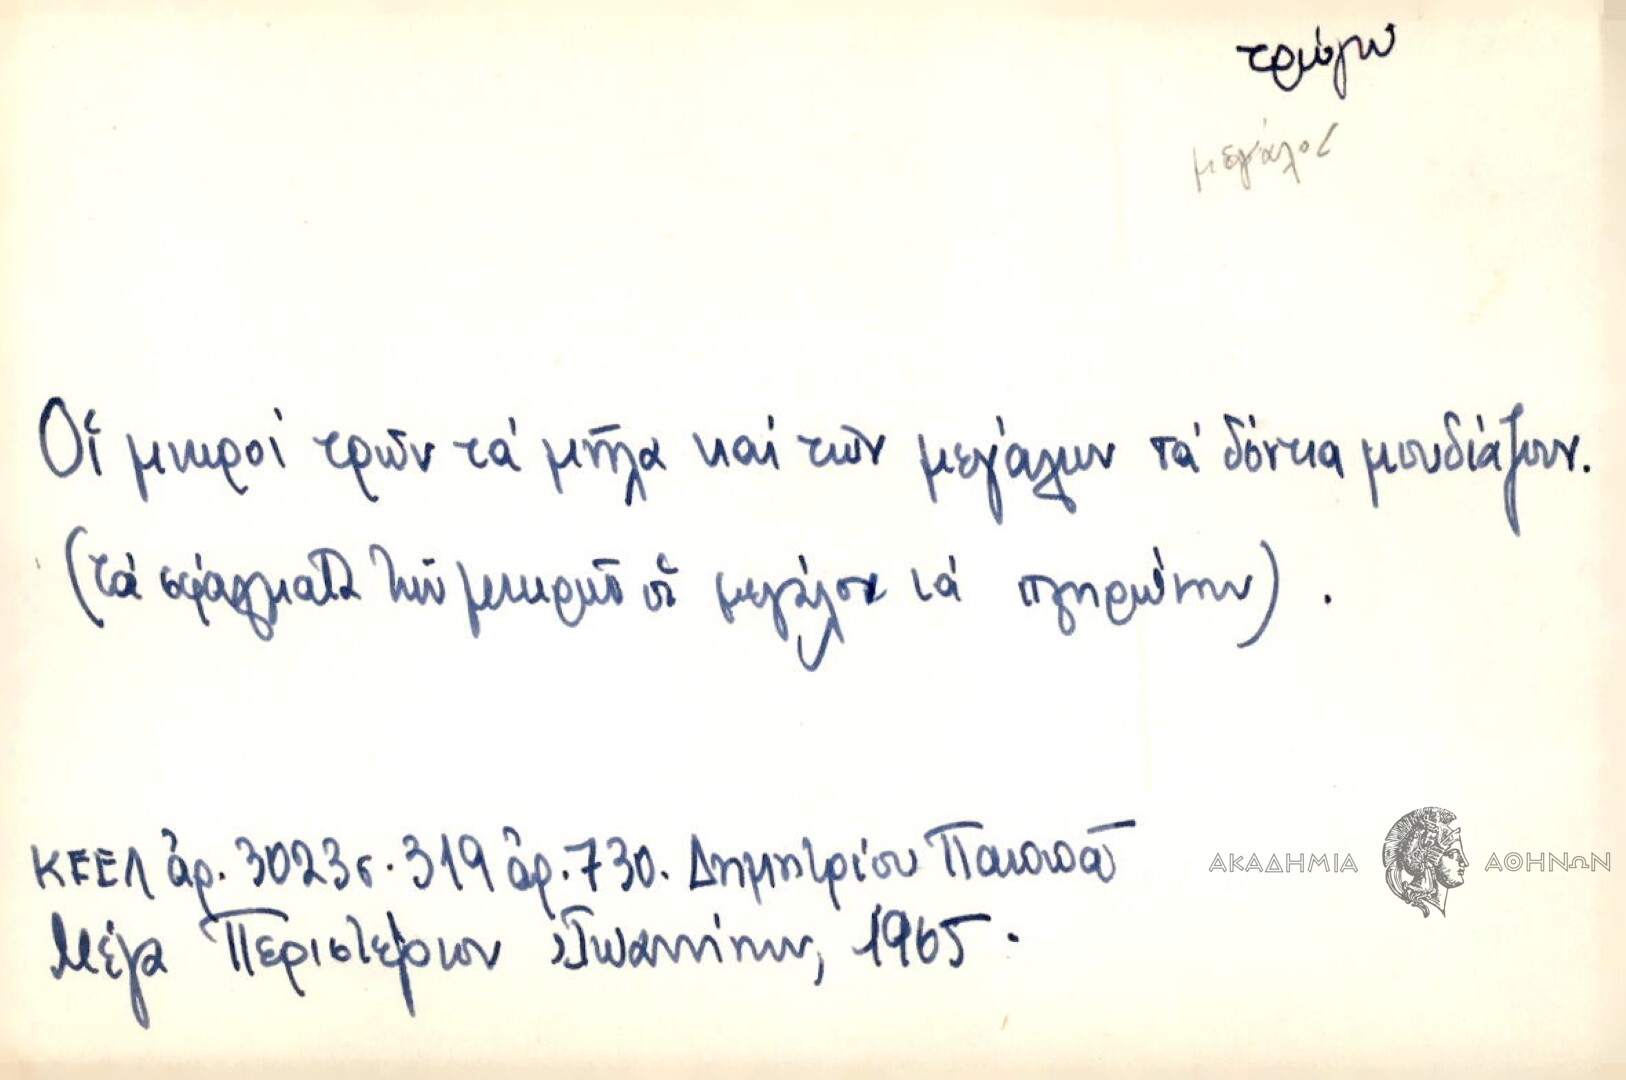 τρώγω
μεγάλος
Οἵ μικροί τρῶν τά μῆλα καί τῶν μεγάλων τά δόντια μουδιάζουν.
(τά σφάλματα τῶν μικρῶν οἱ μεγάλοι τά πληρώνουν).
ΚΕΕΛ ἀρ. 3023 σ. 319 ἀρ. 730. Δημητρίου Παππᾶ
Μέγα Περιστέριον Ἰωαννίνων, 1965.
ΑΚΑΔΗΜΙΑ ΑΘΗΝΩΝ